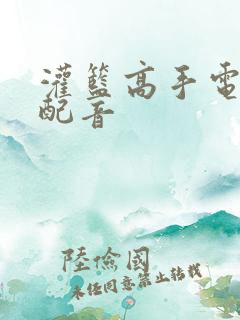 灌籃高手電
配音
陸儉國
未经同意禁止转载